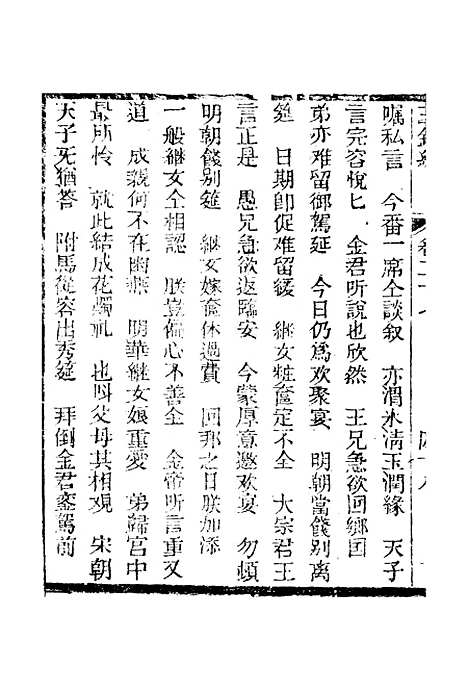 玉釧緣 卷二十七
嘱私言 今番一席仝談叙 亦渭氷清玉潤緣 天子
言完容悅匕 金君听說也欣然 王兄急欲回鄉国
弟亦难留御駕延 今日仍爲欢聚宴 明朝當餞别离
筵 日期即促难留緩 継女粧奩定不全 大宗君王
言正是 愚兄急欲返臨安 今蒙厚意邀欢宴 勿頓
明朝餞别筵 継女嫁奩休過費 回那之日朕加添
一般継女仝相認 朕豈偏心不善全 金帝听言重又
道 成親何不在幽燕 明華継女娘重愛 弟歸宫中
最所怜 就此結成花燭礼 也叫父母其相观 宋朝
天子旡猶答 附馬從容出秀筵 拜倒金君鑾駕前